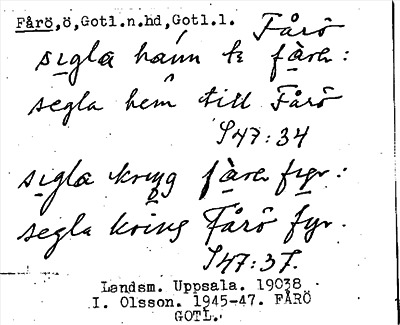 Fårö,ö,Gotl.n.hd,Gotl.l.
Fårö
sigla haim te fàrö:
segla hem till Fårö
S47:34
sigla kring fàrö fyr:
segla kring Fårö fyr.
S47:37.
Landsm. Uppsala. 19038
I. Olsson. 1945-47. FÅRÖ
GOTL.